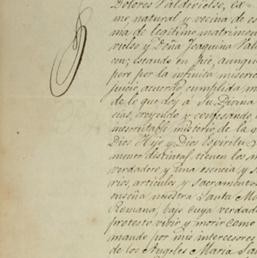 Dolores Valdivielso,
natural y vecina de es
ma de legitimo matrimon
vielso y Doña Joaquina Val
con; estando en pie, aunqu
por por la infinita miseric
juicio acuerdo cumplida m
de lo que doy a Su Divina
cias, creyendo y confesando
inescrutable misterio de la
Dios Hijo y Dios Espiritu
mente distintas, tienen los m
verdadero y una esencia y s
rios, articulos y Sacramentos
enseña nuestra Santa M
Romana, bajo cuya verdad
protesto vivir y morir como
mando por mis intercesores
de los Angeles Maria San